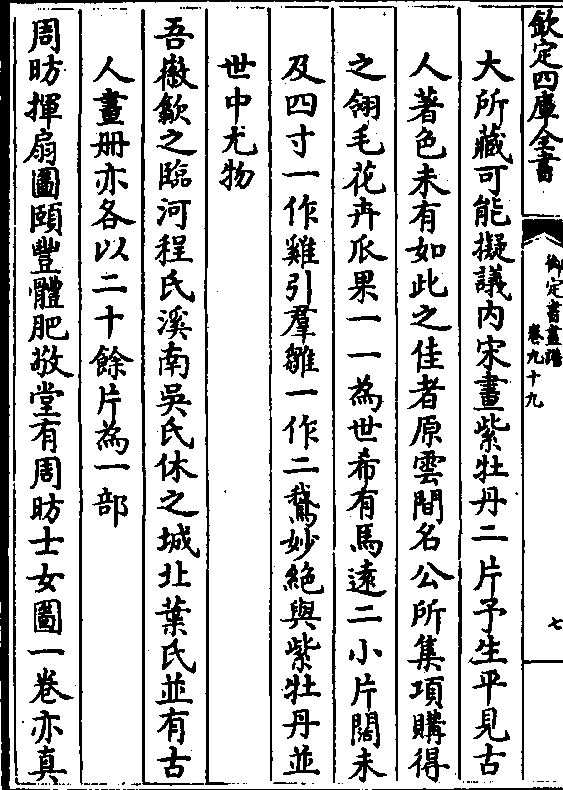 欽定四庫全書
御定書畫譜
卷九十九
七
大所藏可能擬議内宋畫紫牡丹二片予生平見古
人著色未有如此之佳者原雲間名公所集項購得
之翎毛花卉瓜果一一為世希有馬遠二小片闊未
及四寸一作雞引羣雛一作二鵞妙絶與紫牡丹並
世中尤物
吾徽歙之臨河程氏溪南吳氏休之城北葉氏並有古
人畫册亦各以二十餘片為一部
周昉揮扇圖頤豐體肥敬堂有周昉士女圖一卷亦真